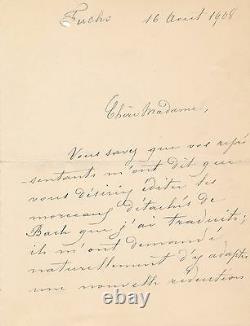 Fuchs 16 Aout 1908
Chère Madame,
Vous savez que vos repré
sentants m'ont dit que
vous désiriez éditer les
morceaux détachés de
Bach que j'ai traduits;
ils m'ont demandé
naturellement d'y adapter
une nouvelle réduction
thebookprints.com